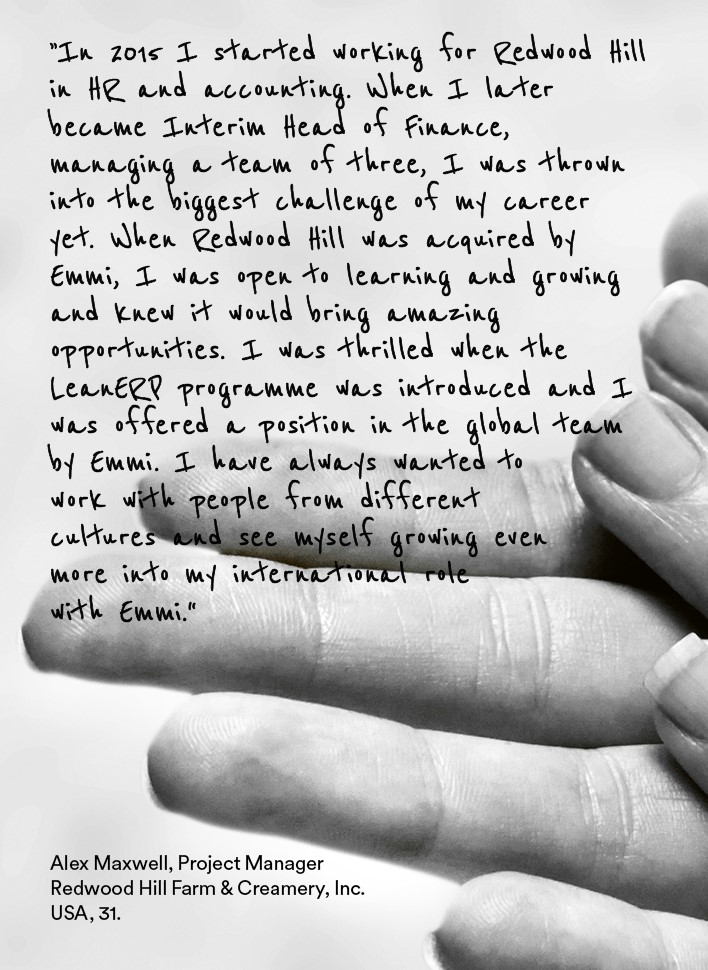 "In 2015 I started working for Redwood Hill
in HR and accounting. When I later
became Interim Head of Finance,
managing a team of three, I was thrown
into the biggest challenge of my career
yet. When Redwood Hill was acquired by
Emmi, I was open to learning and growing
and knew it would bring amazing
opportunities. I was thrilled when the
LeanERP programme was introduced and I
was offered a position in the global team
by Emmi. I have always wanted to
work with people from different
cultures and see myself growing even
more into my international role
with Emmi."
Alex Maxwell, Project Manager
Redwood Hill Farm & Creamery, Inc.
USA, 31.